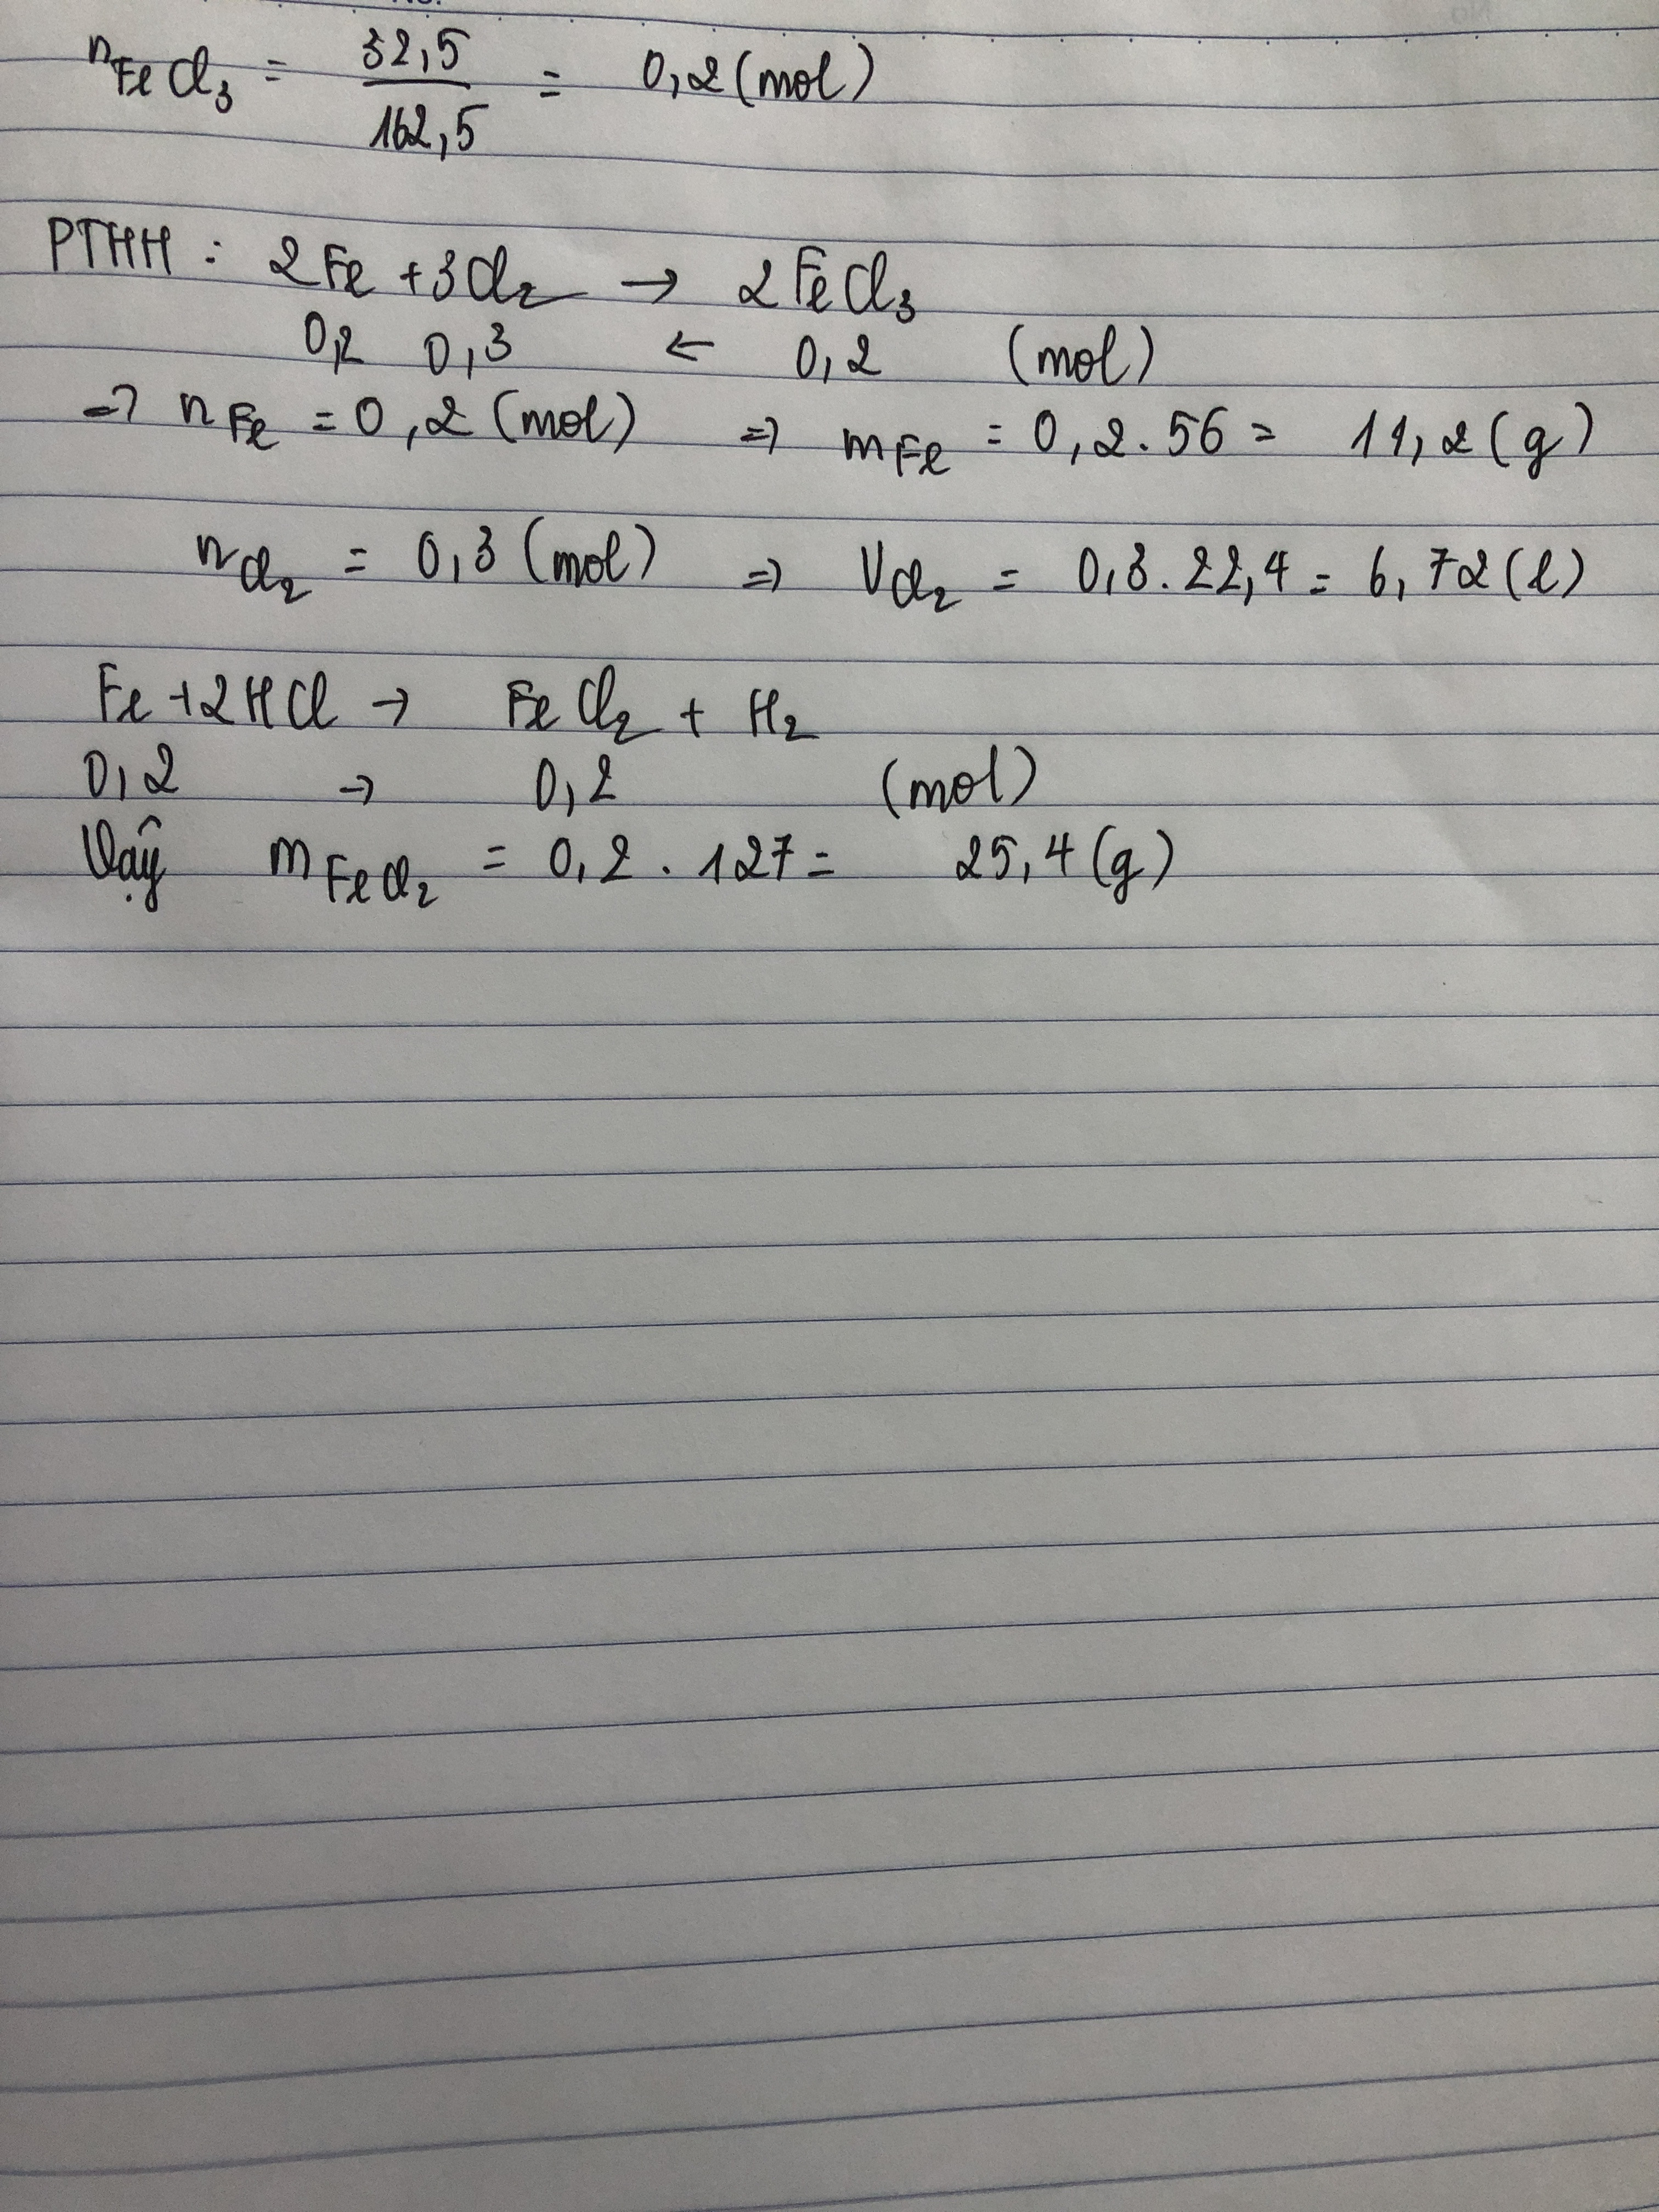 nFeCl3 = 32,5 / 162,5 = 0,2 (mol)
PTHH : 2Fe + 3Cl2 → 2FeCl3
0,2 0,3 ← 0,2 (mol)
=> nFe = 0,2 (mol) => mFe = 0,2 . 56 = 11,2 (g)
nCl2 = 0,3 (mol) => VCl2 = 0,3 . 22,4 = 6,72 (l)
Fe + 2HCl → FeCl2 + H2
0,2 → 0,2 (mol)
Vậy mFeCl2 = 0,2 . 127 = 25,4 (g)